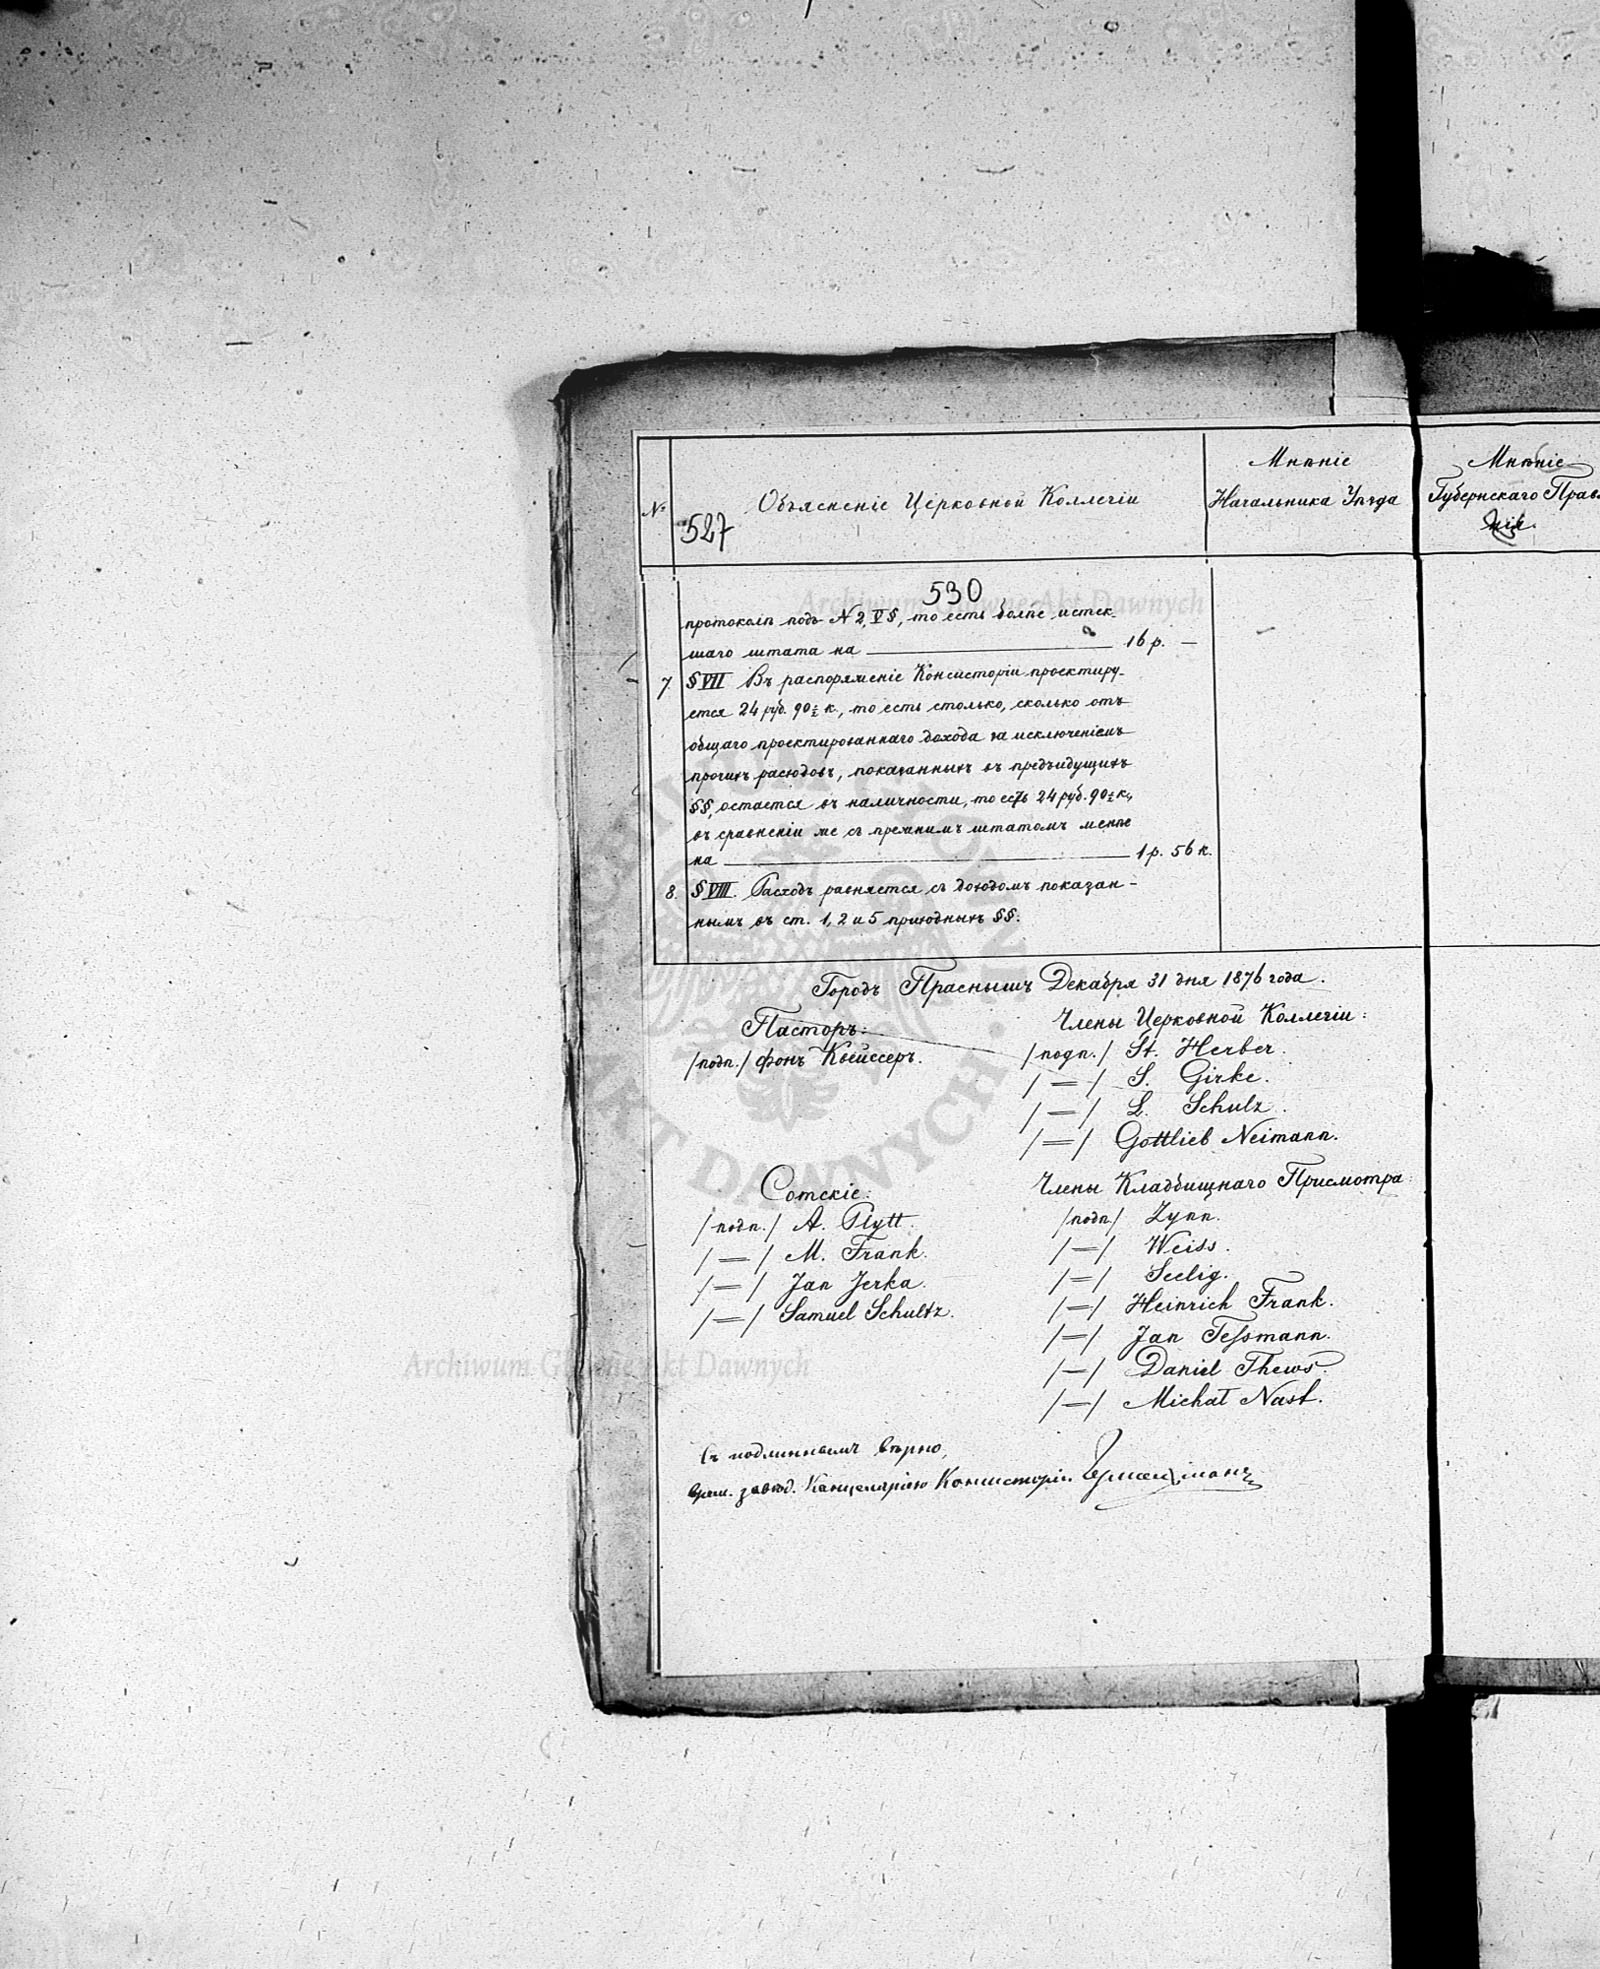 №
527
Объясненіе Церковной Коллегіи
Мнѣніе
Начальника Уѣзда
Мнѣніе
Губернскаго Прав
нія.
530
Archiwum Główne Akt Dawnych
протоколѣ подъ № 2, V §, то есть болѣе истек-
шаго штата на 16 р. —
7. § VII Въ распоряженіе Консисторіи проектиру-
ется 24 руб. 90½ к., то есть столько, сколько отъ
общаго проектированнаго дохода за исключеніемъ
прочихъ расходовъ, показанныхъ въ предъидущихъ
§§, остается въ наличности, то есть 24 руб. 90½ к.,
въ сравненіи же съ прежнимъ штатомъ менѣе
на 1 р. 56 к.
8. § VIII. Расходъ равняется съ доходомъ показан-
нымъ въ ст. 1, 2 и 5 приходныхъ §§.
Городъ Праснышъ Декабря 31 дня 1876 года.
Пасторъ:
/подп./ фонъ Квейссеръ.
Члены Церковной Коллегіи:
/подп./ St. Herber.
/=/ S. Girke.
/=/ L. Schulz.
/=/ Gottlieb Neimann.
Сотскіе:
/подп./ A. Plytt.
/=/ M. Frank.
/=/ Jan Jerka.
/=/ Samuel Schultz.
Члены Кладбищнаго Присмотра:
/подп/ Zynn.
/=/ Weiss.
/=/ Seelig.
/=/ Heinrich Frank.
/=/ Jan Teſsmann.
/=/ Daniel Thews.
/=/ Michał Nast.
Archiwum Główne Akt Dawnych
Съ подлиннымъ вѣрно,
врем. завѣд. Канцеляріею Консисторіи
ARCHIWUM GŁÓWNE AKT DAWNYCH